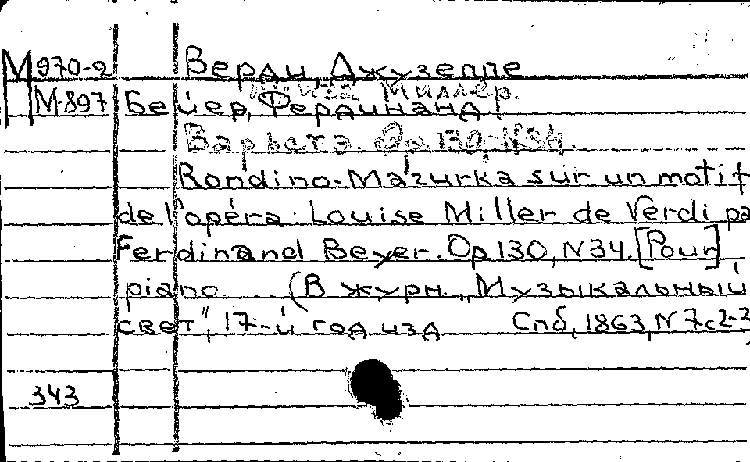 М 970-2 Верди, Джузеппе
Луиза Миллер.
М-897 Бейер, Фердинанд.
Варьетэ. Op.130, №34.
Rondino-Mazurka sur un motif
de l'opéra: Louise Miller de Verdi pa
Ferdinand Beyer. Op.130, N34. [Pour]
piano. (В журн. „Музыкальный
свет", 17-й год изд Спб, 1863, N 7, с 2-3
343